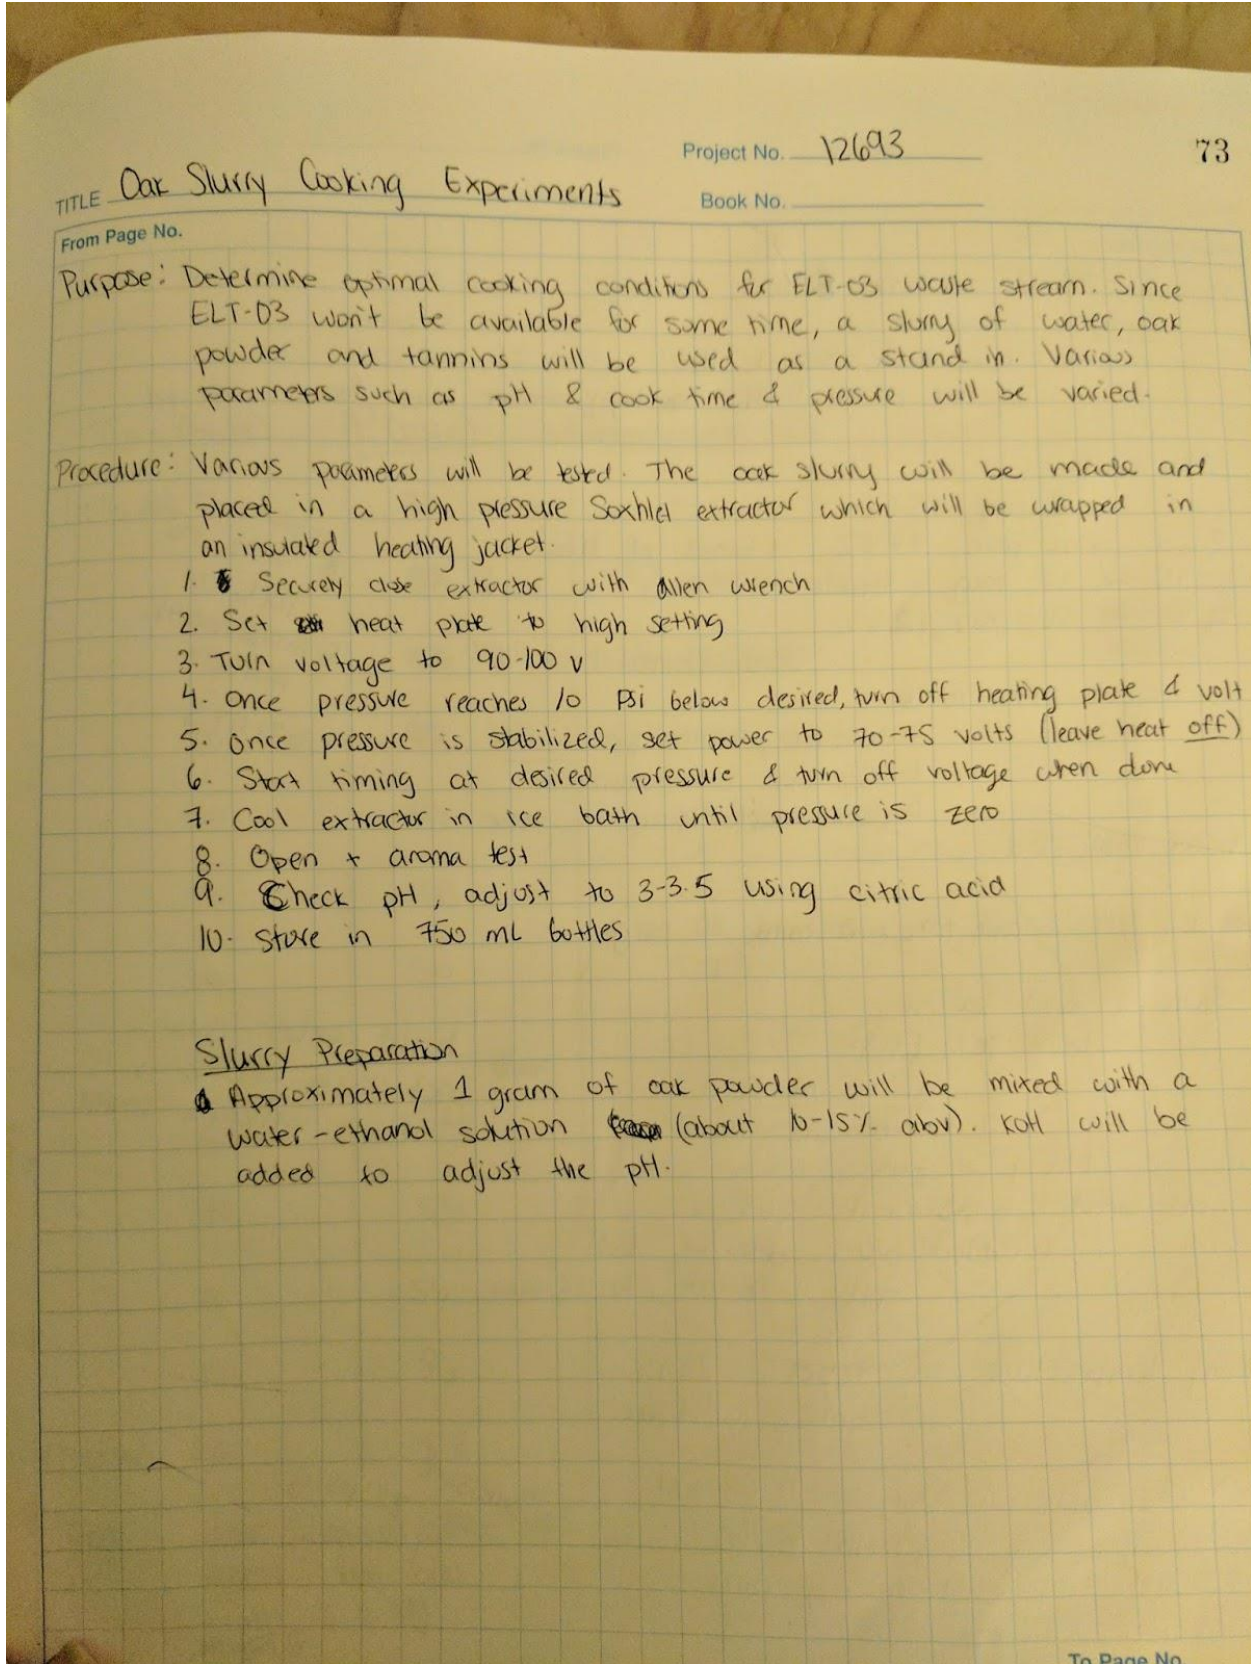 Project No. 12693
73
TITLE Oak Slurry Cooking Experiments
Book No.
From Page No.
Purpose: Determine optimal cooking conditions for ELT-03 waste stream. Since
ELT-03 won't be available for some time, a slurry of water, oak
powder and tannins will be used as a stand in. Various
parameters such as pH & cook time & pressure will be varied.
Procedure: Various parameters will be tested. The oak slurry will be made and
placed in a high pressure Soxhlet extractor which will be wrapped in
an insulated heating jacket.
1. Securely close extractor with Allen wrench
2. Set heat plate to high setting
3. Turn voltage to 90-100 V
4. Once pressure reaches 10 psi below desired, turn off heating plate & volt
5. Once pressure is stabilized, set power to 70-75 volts (leave heat off)
6. Start timing at desired pressure & turn off voltage when done
7. Cool extractor in ice bath until pressure is zero
8. Open + aroma test
9. Check pH, adjust to 3-3.5 using citric acid
10. Store in 750 mL bottles
Slurry Preparation
Approximately 1 gram of oak powder will be mixed with a
water-ethanol solution (about 10-15% abv). KOH will be
added to adjust the pH.
To Page No.